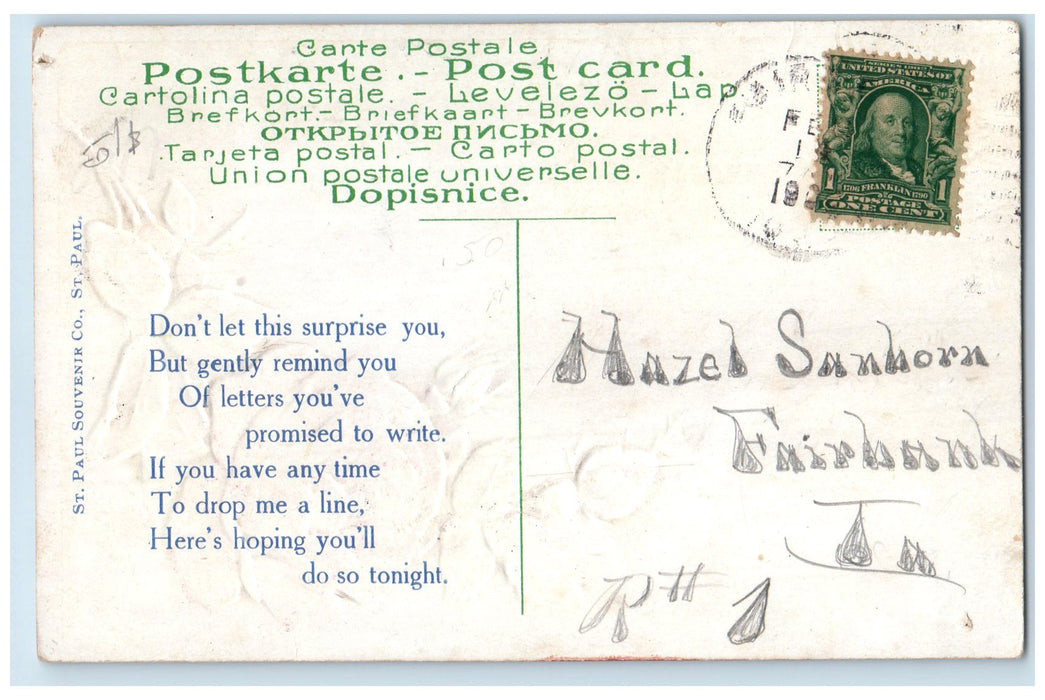 Carte Postale
Postkarte. - Post card.
Cartolina postale. - Levelező - Lap
Brefkort. - Briefkaart - Brevkort.
ОТКРЫТОЕ ПИСЬМО.
Tarjeta postal. - Carto postal.
Union postale universelle.
Dopisnice.
SERIES 1902
UNITED STATES OF
AMERICA
1 1
1706 FRANKLIN 1790
POSTAGE
ONE CENT
FE
1
7
19
ST. PAUL SOUVENIR CO., ST. PAUL.
50
Don't let this surprise you,
But gently remind you
Of letters you've
promised to write.
If you have any time
To drop me a line,
Here's hoping you'll
do so tonight.
Hazel Sanborn
Fairbank
Ia
R # 1